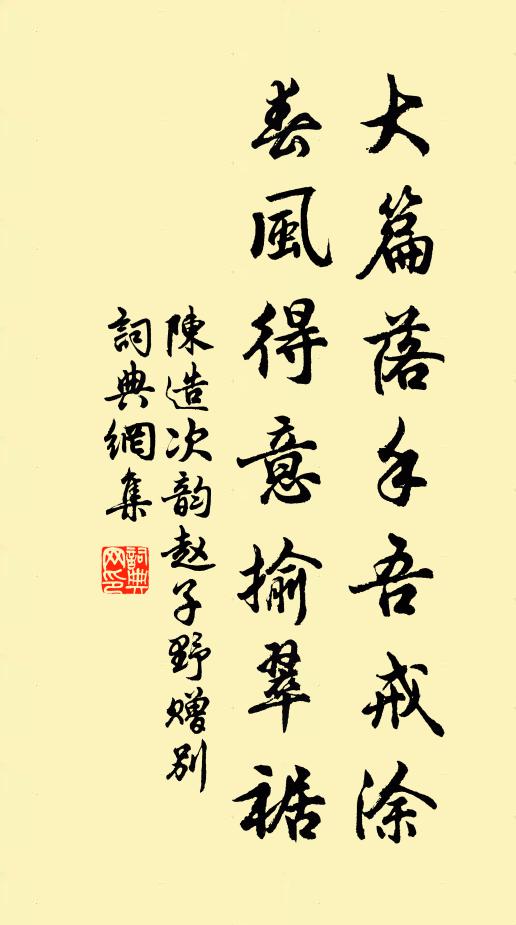 大篇落手吾戒涂
春風得意揄翠裾
陳造次韵赵子野赠别
詞典網集
詞典网印